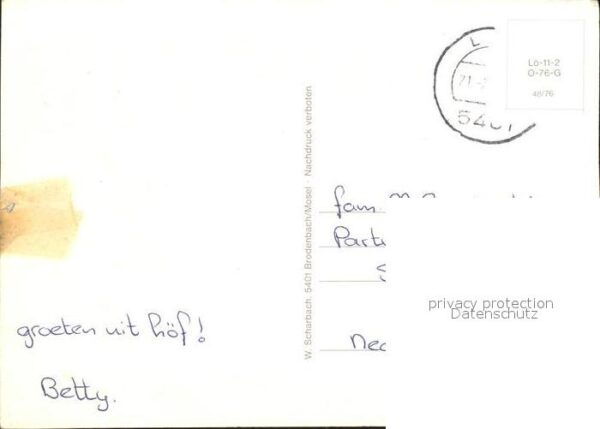 Lö-11-2
O-76-G
48/76
5401
W. Scharbach, 5401 Brodenbach/Mosel · Nachdruck verboten
fam.
privacy protection
Datenschutz
groeten uit höf!
Betty.